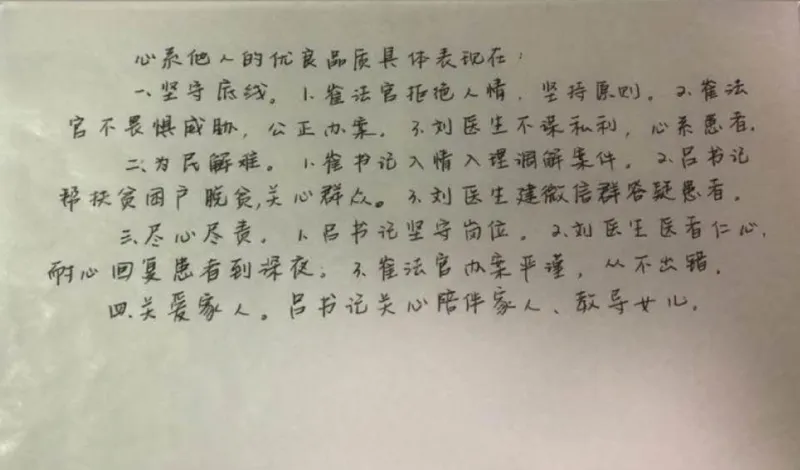 心系他人的优良品质具体表现在：
一、坚守底线。1.崔法官拒绝人情，坚持原则。2.崔法
官不畏惧威胁，公正办案。3.刘医生不谋私利，心系患者。
二、为民解难。1.崔书记入情入理调解案件。2.吕书记
帮扶贫困户脱贫，关心群众。3.刘医生建微信群答疑患者。
三、尽心尽责。1.吕书记坚守岗位。2.刘医生医者仁心，
耐心回复患者到深夜；3.崔法官办案严谨，从不出错。
四、关爱家人。吕书记关心陪伴家人、教导女儿。